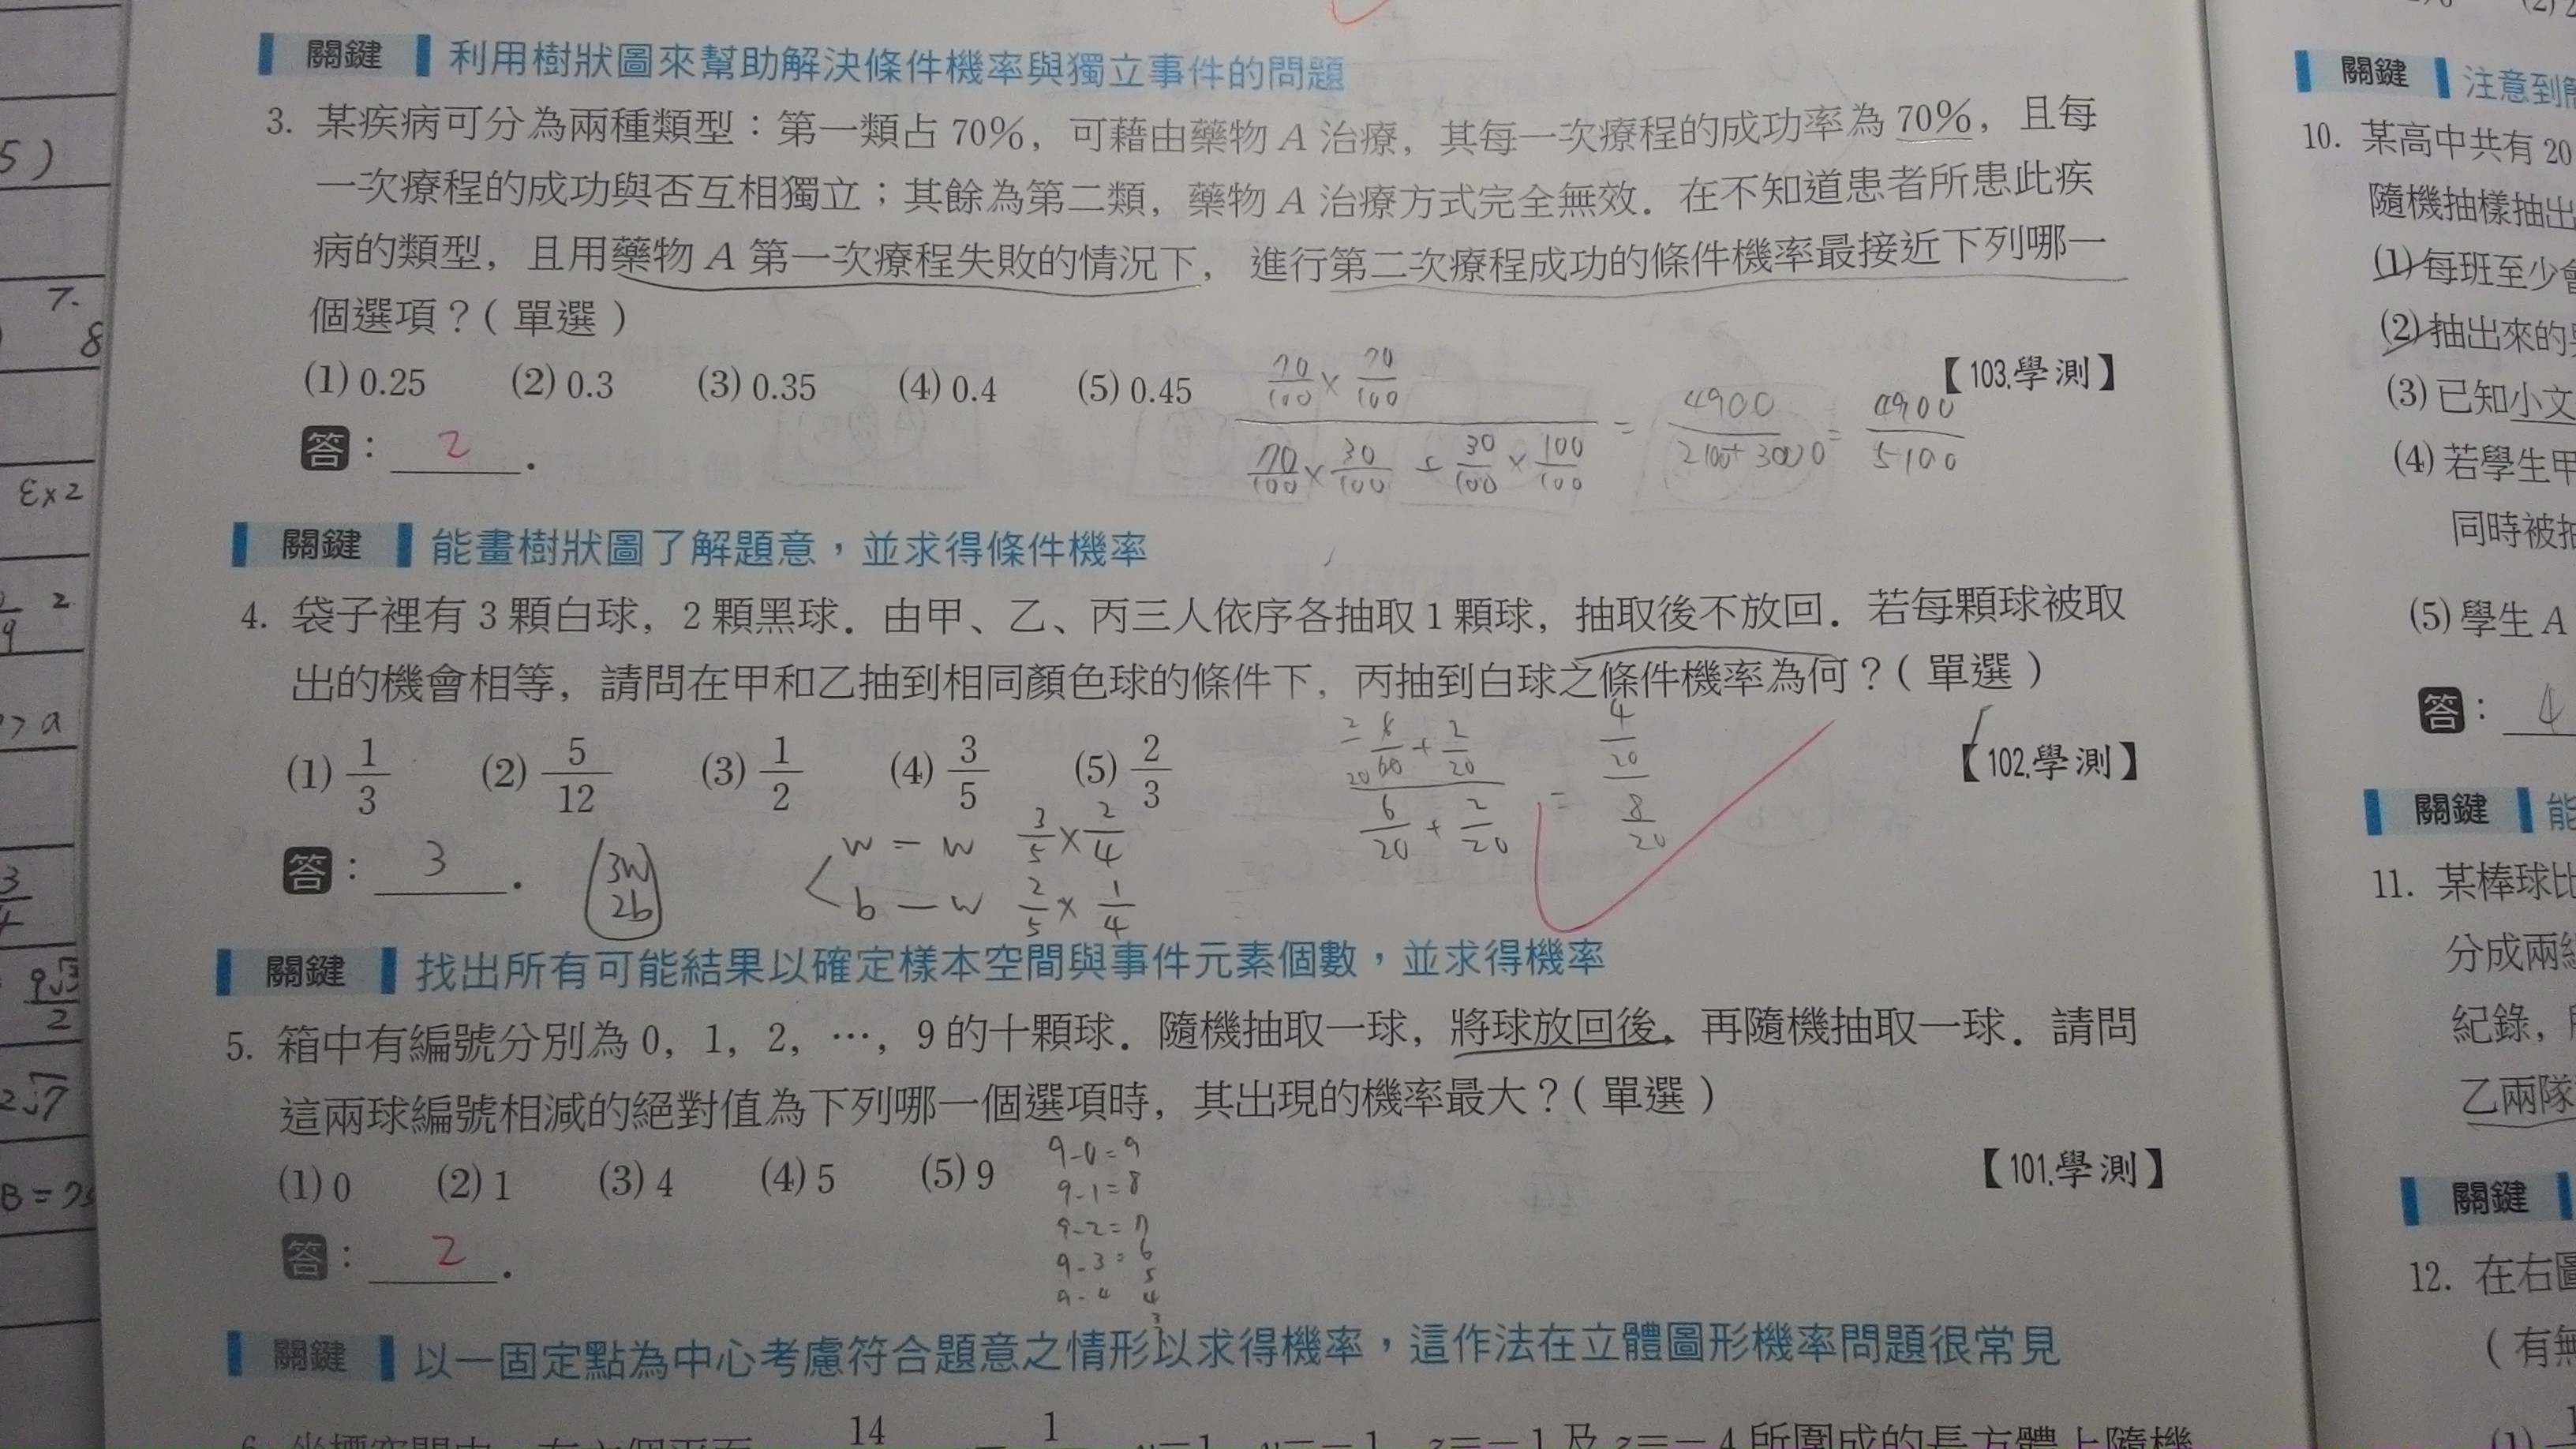 關鍵 利用樹狀圖來幫助解決條件機率與獨立事件的問題
3. 某疾病可分為兩種類型：第一類占 70%，可藉由藥物 A 治療，其每一次療程的成功率為 70%，且每
一次療程的成功與否互相獨立；其餘為第二類，藥物 A 治療方式完全無效．在不知道患者所患此疾
病的類型，且用藥物 A 第一次療程失敗的情況下，進行第二次療程成功的條件機率最接近下列哪一
個選項？(單選)
(1) 0.25 (2) 0.3 (3) 0.35 (4) 0.4 (5) 0.45 【103.學測】
70/100 × 70/100
70/100 × 30/100 + 30/100 × 100/100 = 4900/2100+3000 = 4900/5100
答：2．
關鍵 能畫樹狀圖了解題意，並求得條件機率
4. 袋子裡有 3 顆白球，2 顆黑球．由甲、乙、丙三人依序各抽取 1 顆球，抽取後不放回．若每顆球被取
出的機會相等，請問在甲和乙抽到相同顏色球的條件下，丙抽到白球之條件機率為何？(單選)
(1) 1/3 (2) 5/12 (3) 1/2 (4) 3/5 (5) 2/3 【102.學測】
6/20 + 2/20 = 4/20 8/20
答：3．
3W
2b
w – w 3/5 × 2/4
b – w 2/5 × 1/4
關鍵 找出所有可能結果以確定樣本空間與事件元素個數，並求得機率
5. 箱中有編號分別為 0，1，2，…，9 的十顆球．隨機抽取一球，將球放回後，再隨機抽取一球．請問
這兩球編號相減的絕對值為下列哪一個選項時，其出現的機率最大？(單選)
(1) 0 (2) 1 (3) 4 (4) 5 (5) 9 【101.學測】
9-0=9
9-1=8
9-2=7
9-3=6
5
9-4 4
3
答：2．
關鍵 以一固定點為中心考慮符合題意之情形以求得機率，這作法在立體圖形機率問題很常見
5)
7.
8
Ex2
2
9
> a
3
4
9√3
2
2√7
關鍵 注意到
10. 某高中共有 20
隨機抽樣抽出
(1) 每班至少
(2) 抽出來的
(3) 已知小文
(4) 若學生甲
同時被抽
(5) 學生 A
答：4
關鍵 能
11. 某棒球比
分成兩組
紀錄，
乙兩隊
關鍵
12. 在右圖
(有無